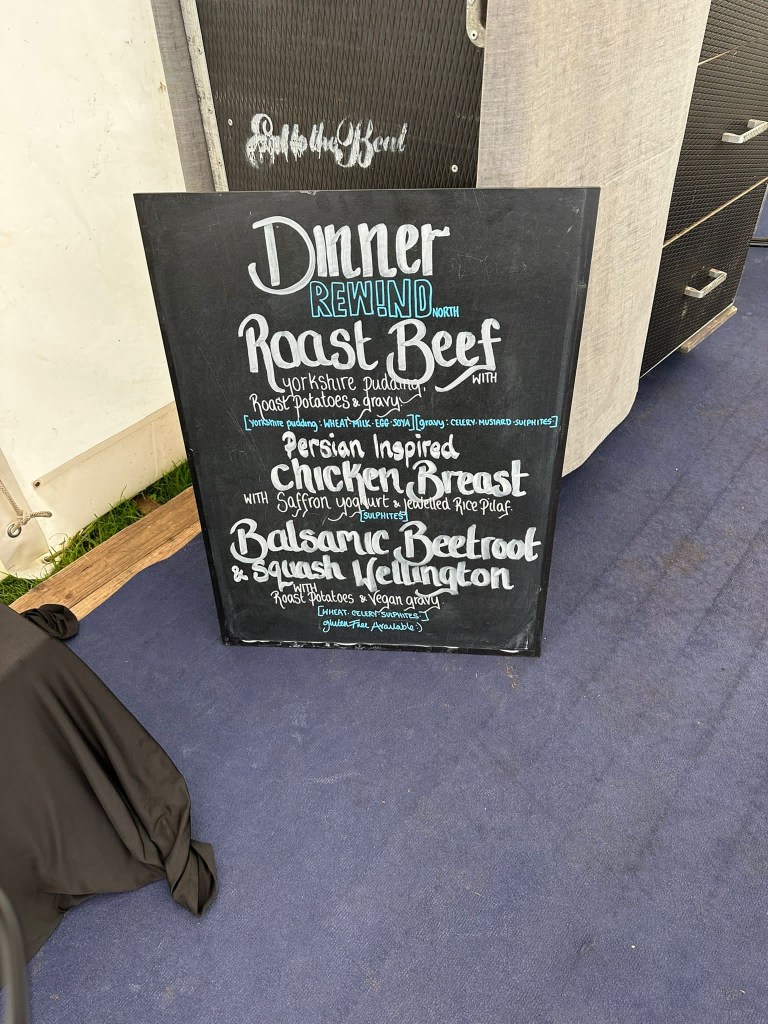 Eat to the Beat
Dinner
REW!ND NORTH
Roast Beef
WITH
Yorkshire pudding,
Roast Potatoes & gravy.
[Yorkshire pudding: WHEAT·MILK·EGG·SOYA] [gravy: CELERY·MUSTARD·SULPHITES]
Persian Inspired
Chicken Breast
WITH Saffron yoghurt & Jewelled Rice Pilaf.
[SULPHITES]
Balsamic Beetroot
& Squash Wellington
WITH
Roast Potatoes & Vegan gravy
[WHEAT·CELERY·SULPHITES]
gluten Free Available :)